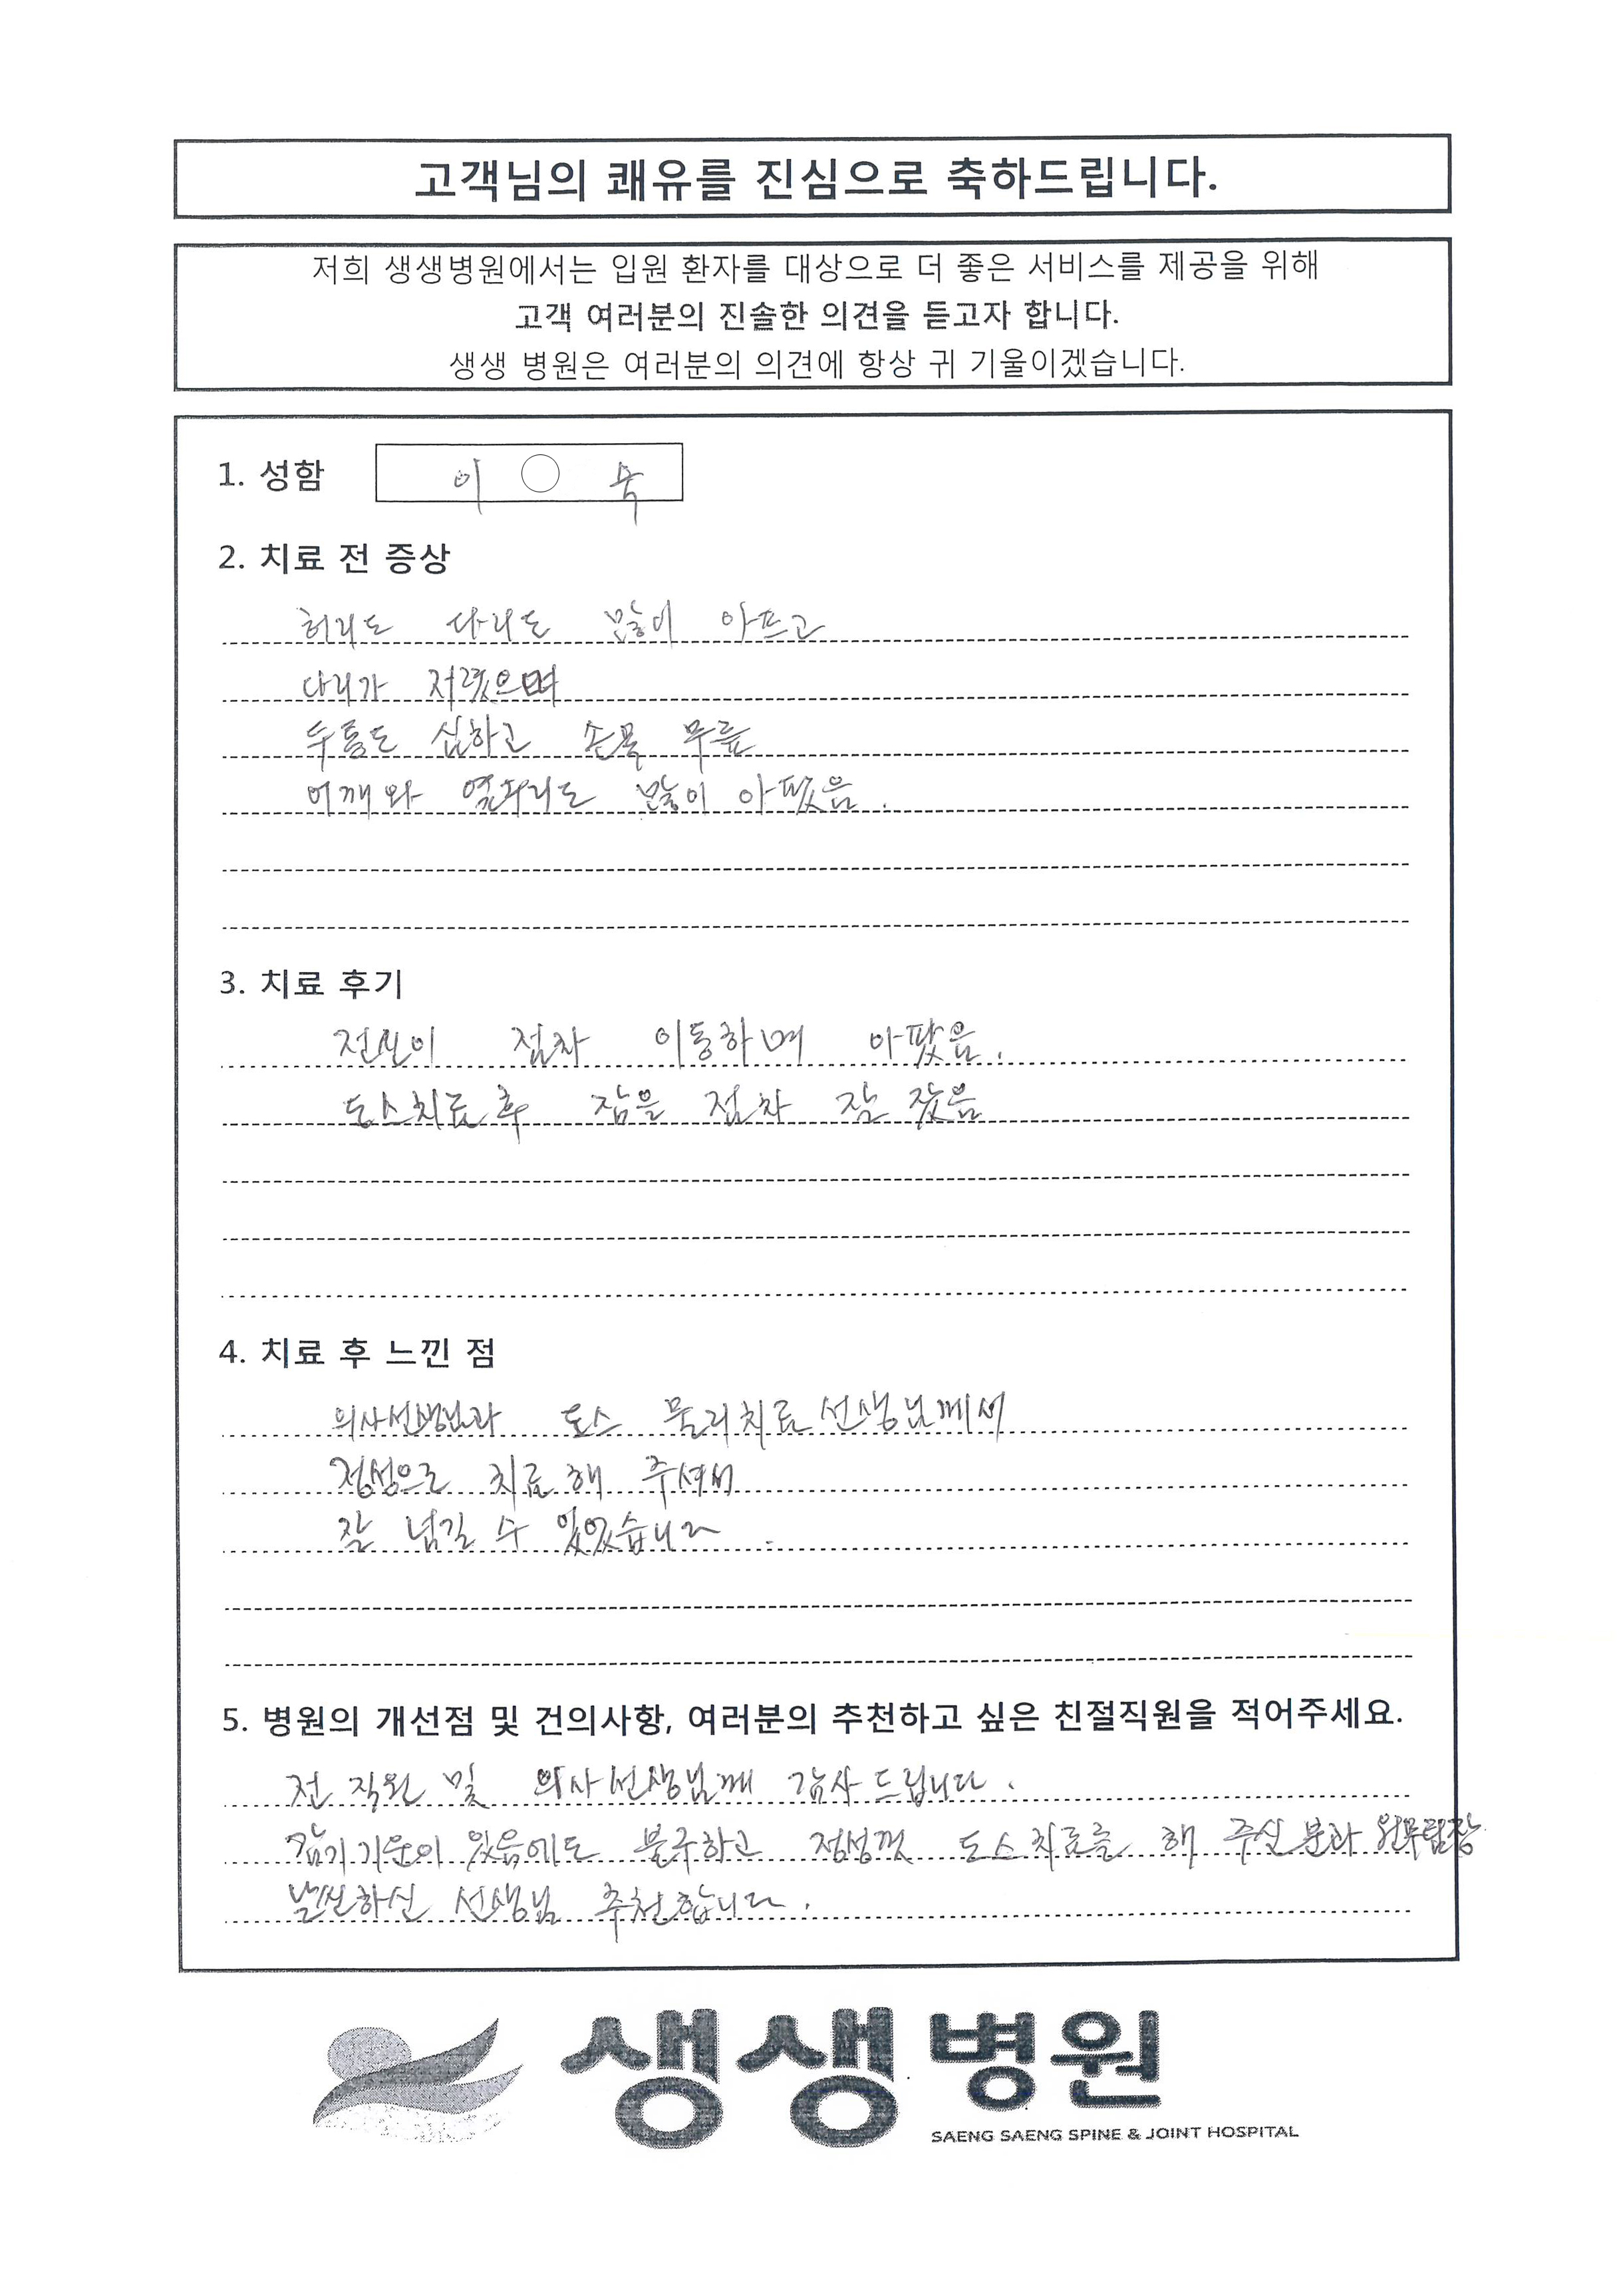 고객님의 쾌유를 진심으로 축하드립니다.
저희 생생병원에서는 입원 환자를 대상으로 더 좋은 서비스를 제공을 위해
고객 여러분의 진솔한 의견을 듣고자 합니다.
생생 병원은 여러분의 의견에 항상 귀 기울이겠습니다.
1. 성함
이 ○ 욱
2. 치료 전 증상
허리도 다리도 많이 아프고
다리가 저렸으며
두통도 심하고 손목 무릎
어깨와 옆구리도 많이 아팠음.
3. 치료 후기
전신이 점차 이동하며 아팠음.
도스치료후 잠을 점차 잘 잤음
4. 치료 후 느낀 점
의사선생님과 도스 물리치료선생님께서
정성으로 치료해 주셔서
잘 넘길 수 있었습니다.
5. 병원의 개선점 및 건의사항, 여러분의 추천하고 싶은 친절직원을 적어주세요.
전 직원 및 의사선생님께 감사드립니다.
감기기운이 있음에도 불구하고 정성껏 도스치료를 해 주신분과 원무팀장
날씬하신 선생님 추천합니다.
생생병원
SAENG SAENG SPINE & JOINT HOSPITAL